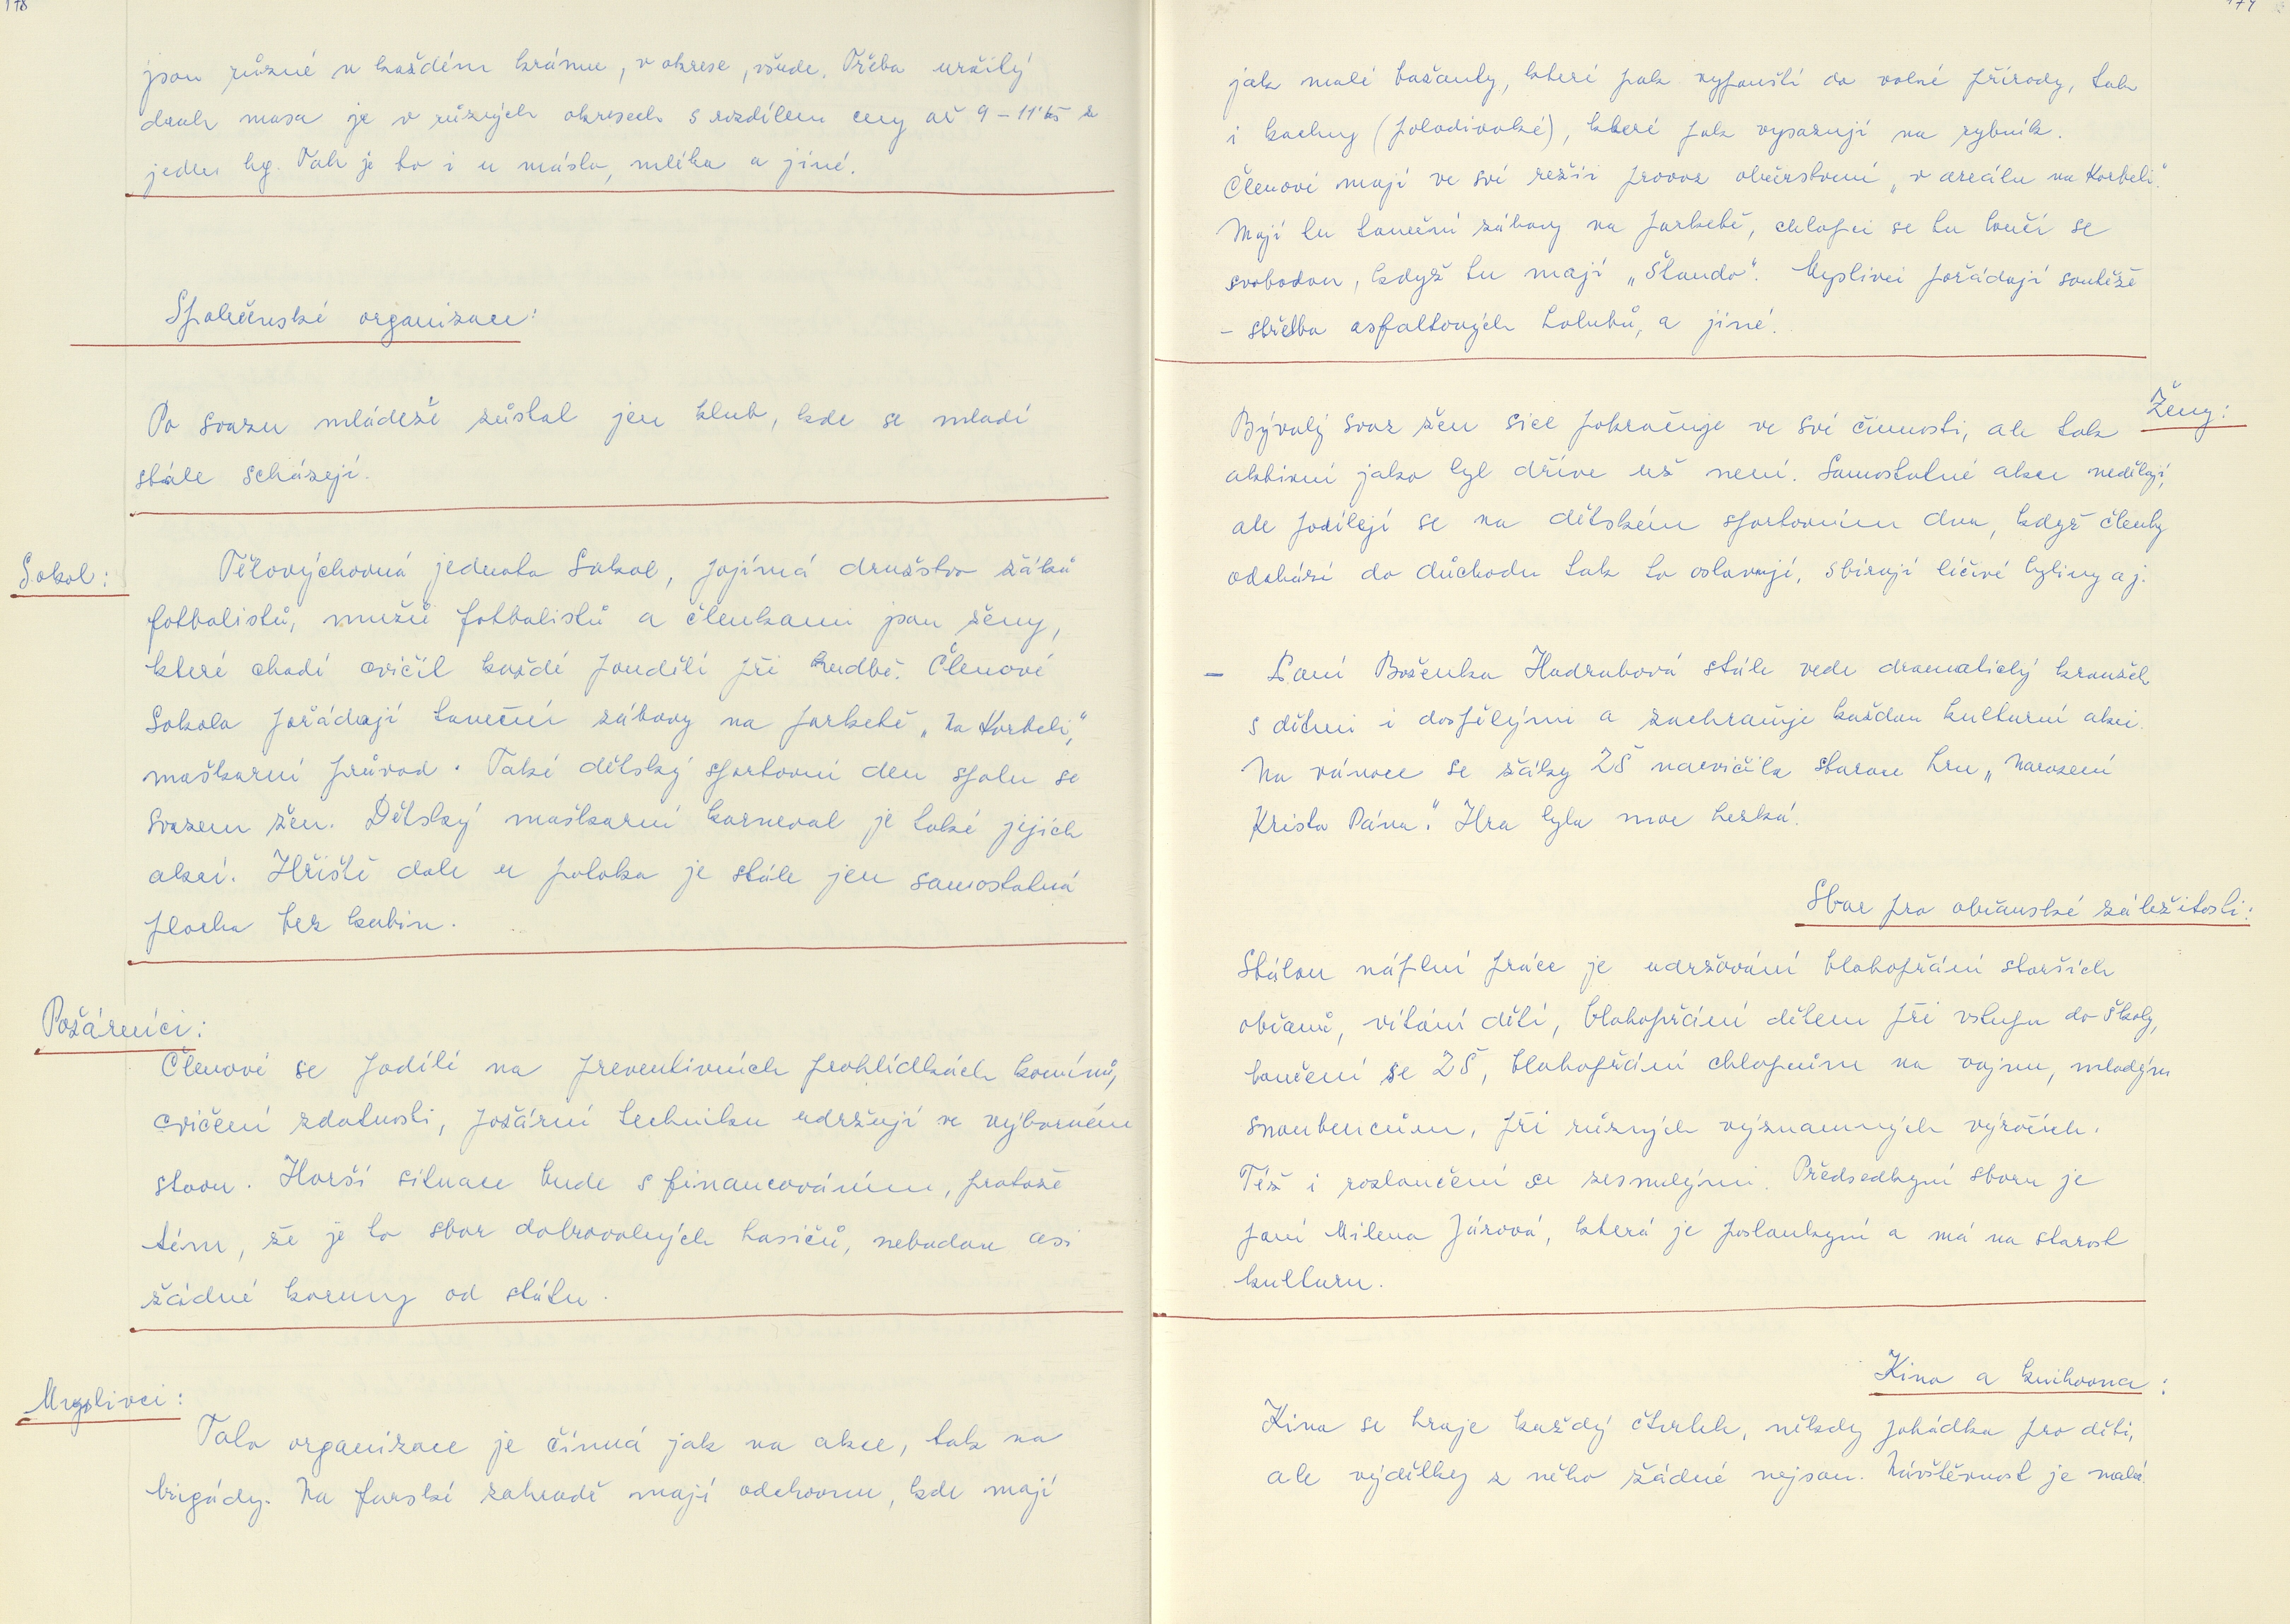 178
jsou různé v každém krámu, v okrese, všude. Třeba určitý
druh masa je v různých okresech s rozdílem ceny až 9 – 11 kčs za
jeden kg. Tak je to i u másla, mléka a jiné.
Společenské organizace:
Po svazu mládeže zůstal jen klub, kde se mladí
stále scházejí.
Sokol:
Tělovýchovná jednota Sokol, pojímá družstvo žáků
fotbalistů, mužů fotbalistů a členkami jsou ženy,
které chodí cvičit každé pondělí při hudbě. Členové
Sokola pořádají taneční zábavy na parketě „Na Korbeli",
maškarní průvod. Také dětský sportovní den spolu se
Svazem žen. Dětský maškarní karneval je také jejich
akcí. Hřiště dole u potoka je stále jen samostatná
plocha bez kabin.
Požárníci:
Členové se podílí na preventivních prohlídkách komínů,
cvičení zdatnosti, požární techniku udržují ve výborném
stavu. Horší situace bude s financováním, protože
tím, že je to sbor dobrovolných hasičů, nebudou asi
žádné koruny od státu.
Myslivci:
Tato organizace je činná jak na akce, tak na
brigády. Na farské zahradě mají odchovnu, kde mají
179
jak malé bažanty, které pak vypouští do volné přírody, tak
i kachny (polodivoké), které pak vysazují na rybník.
Členové mají ve své režii provoz občerstvení „v areálu na Korbeli".
Mají tu taneční zábavy na parketě, chlapci se tu loučí se
svobodou, když tu mají „Štando". Myslivci pořádají soutěže
– střelba asfaltových holubů, a jiné.
Ženy:
Bývalý svaz žen sice pokračuje ve své činnosti, ale tak
aktivní jako byl dříve už není. Samostatné akce nedělají,
ale podílejí se na dětském sportovním dnu, když členky
odchází do důchodu tak to oslavují, sbírají léčivé byliny aj.
– Paní Boženka Hadrabová stále vede dramatický kroužek
s dětmi i dospělými a zachraňuje každou kulturní akci.
Na vánoce se žáky ZŠ nacvičila starou hru „Narození
Krista Pána". Hra byla moc hezká.
Sbor pro občanské záležitosti:
Stálou náplní práce je udržování blahopřání starších
občanů, vítání dětí, blahopřání dětem při vstupu do školy,
loučení se ZŠ, blahopřání chlapcům na vojnu, mladým
snoubencům, při různých významných výročích.
Též i rozloučení se zesnulými. Předsedkyní sboru je
paní Milena Járová, která je poslankyní a má na starost
kulturu.
Kino a knihovna:
Kino se hraje každý čtvrtek, někdy pohádka pro děti,
ale výdělky z něho žádné nejsou. Návštěvnost je malá.